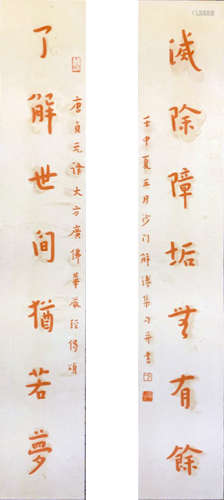 滅除障垢無有餘
壬申夏五月沙门解集句并書
唐貞元譯大方廣佛華嚴經偈頌
了解世間猶若夢